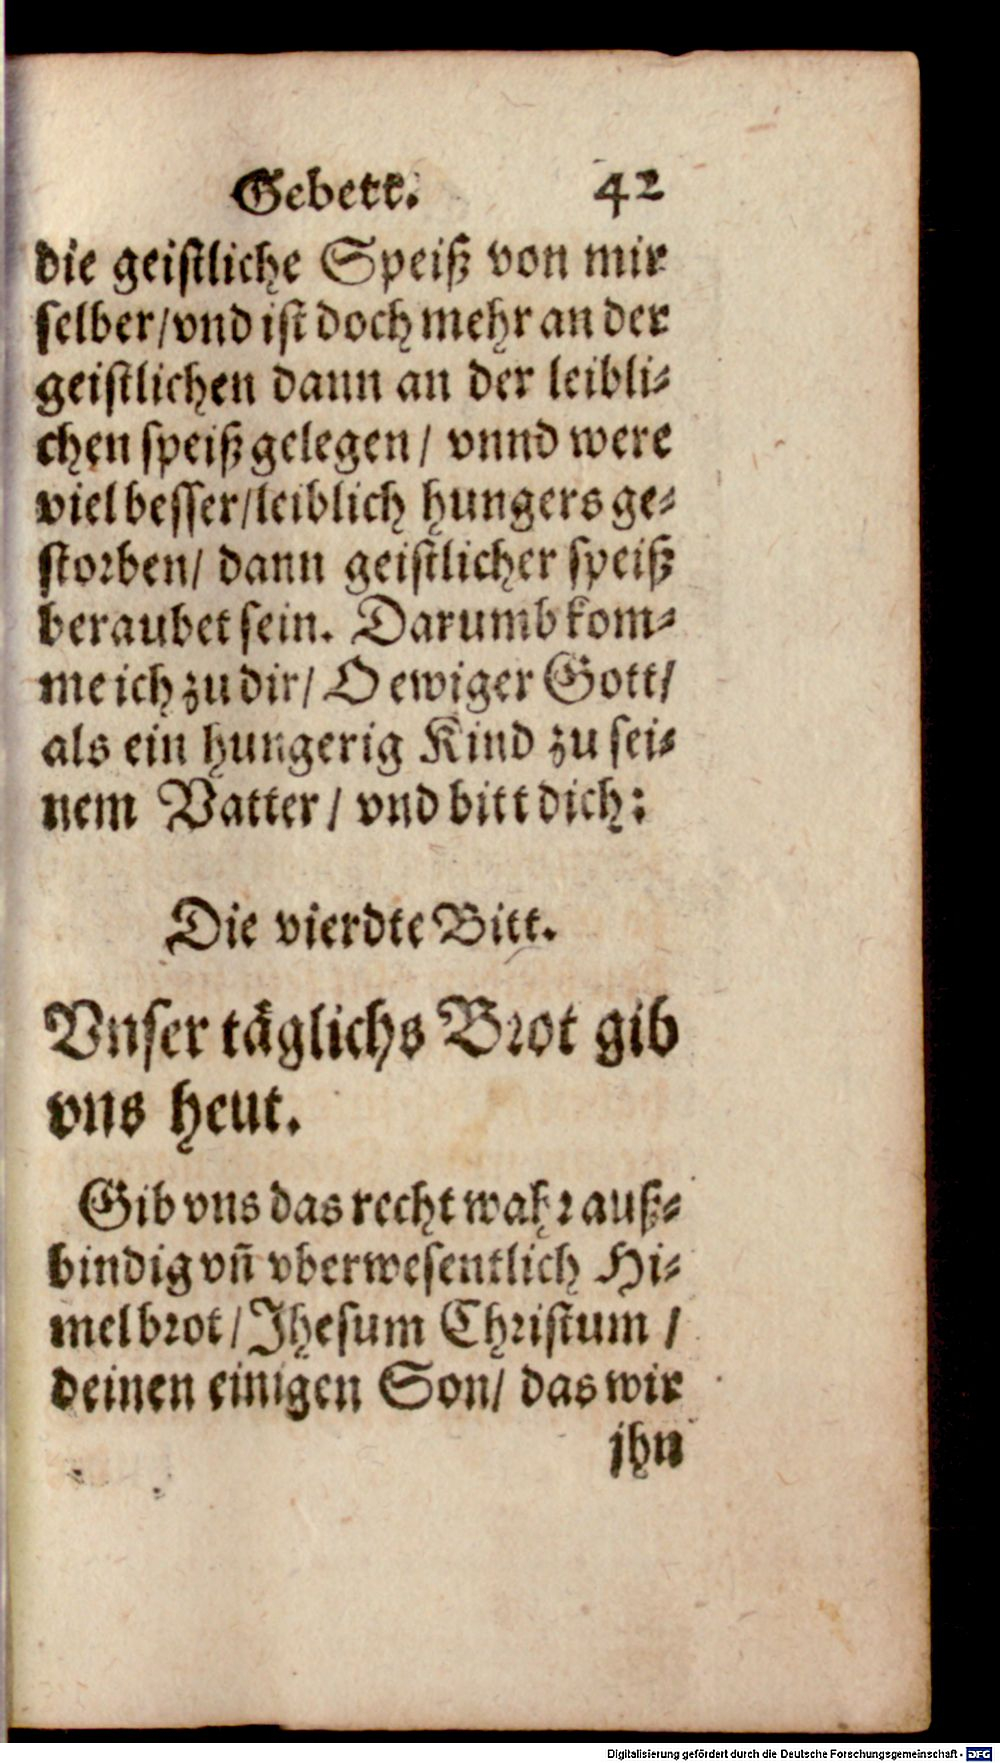 Gebett. 42
die geistliche Speiß von mir
selber/vnd ist doch mehr an der
geistlichen dann an der leibli⸗
chen speiß gelegen/ vnnd were
viel besser/leiblich hungers ge⸗
storben/ dann geistlicher speiß
beraubet sein. Darumb kom⸗
me ich zu dir/ O ewiger Gott/
als ein hungerig Kind zu sei⸗
nem Vatter/ vnd bitt dich:
Die vierdte Bitt.
Vnser täglichs Brot gib
vns heut.
Gib vns das recht wahr auß⸗
bindig vñ vberwesentlich Hi⸗
melbrot/Jhesum Christum /
deinen einigen Son/ das wir
jhn
Digitalisierung gefördert durch die Deutsche Forschungsgemeinschaft - DFG